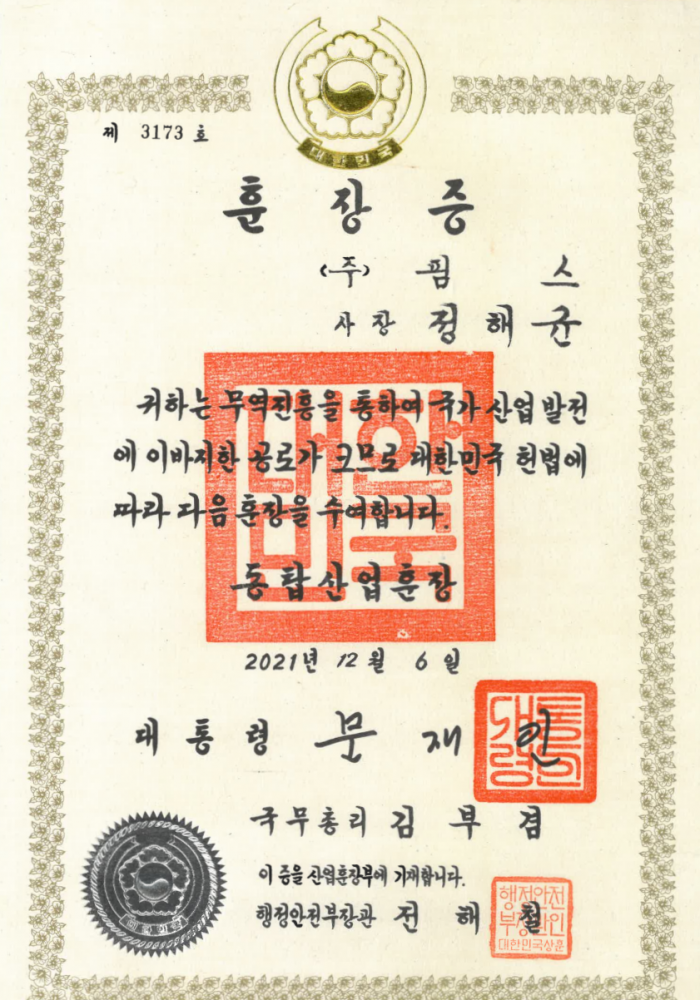 대한민국
제 3173 호
훈장증
(주) 핌스
사장 정해균
귀하는 무역진흥을 통하여 국가 산업 발전
에 이바지한 공로가 크므로 대한민국 헌법에
따라 다음 훈장을 수여합니다.
동탑산업훈장
2021년 12월 6일
대통령 문재인
국무총리 김부겸
이 증을 산업훈장부에 기재합니다.
행정안전부장관 전해철
대한민국
대통령의인
행정안전
부장관인
대한민국상훈
대한민국